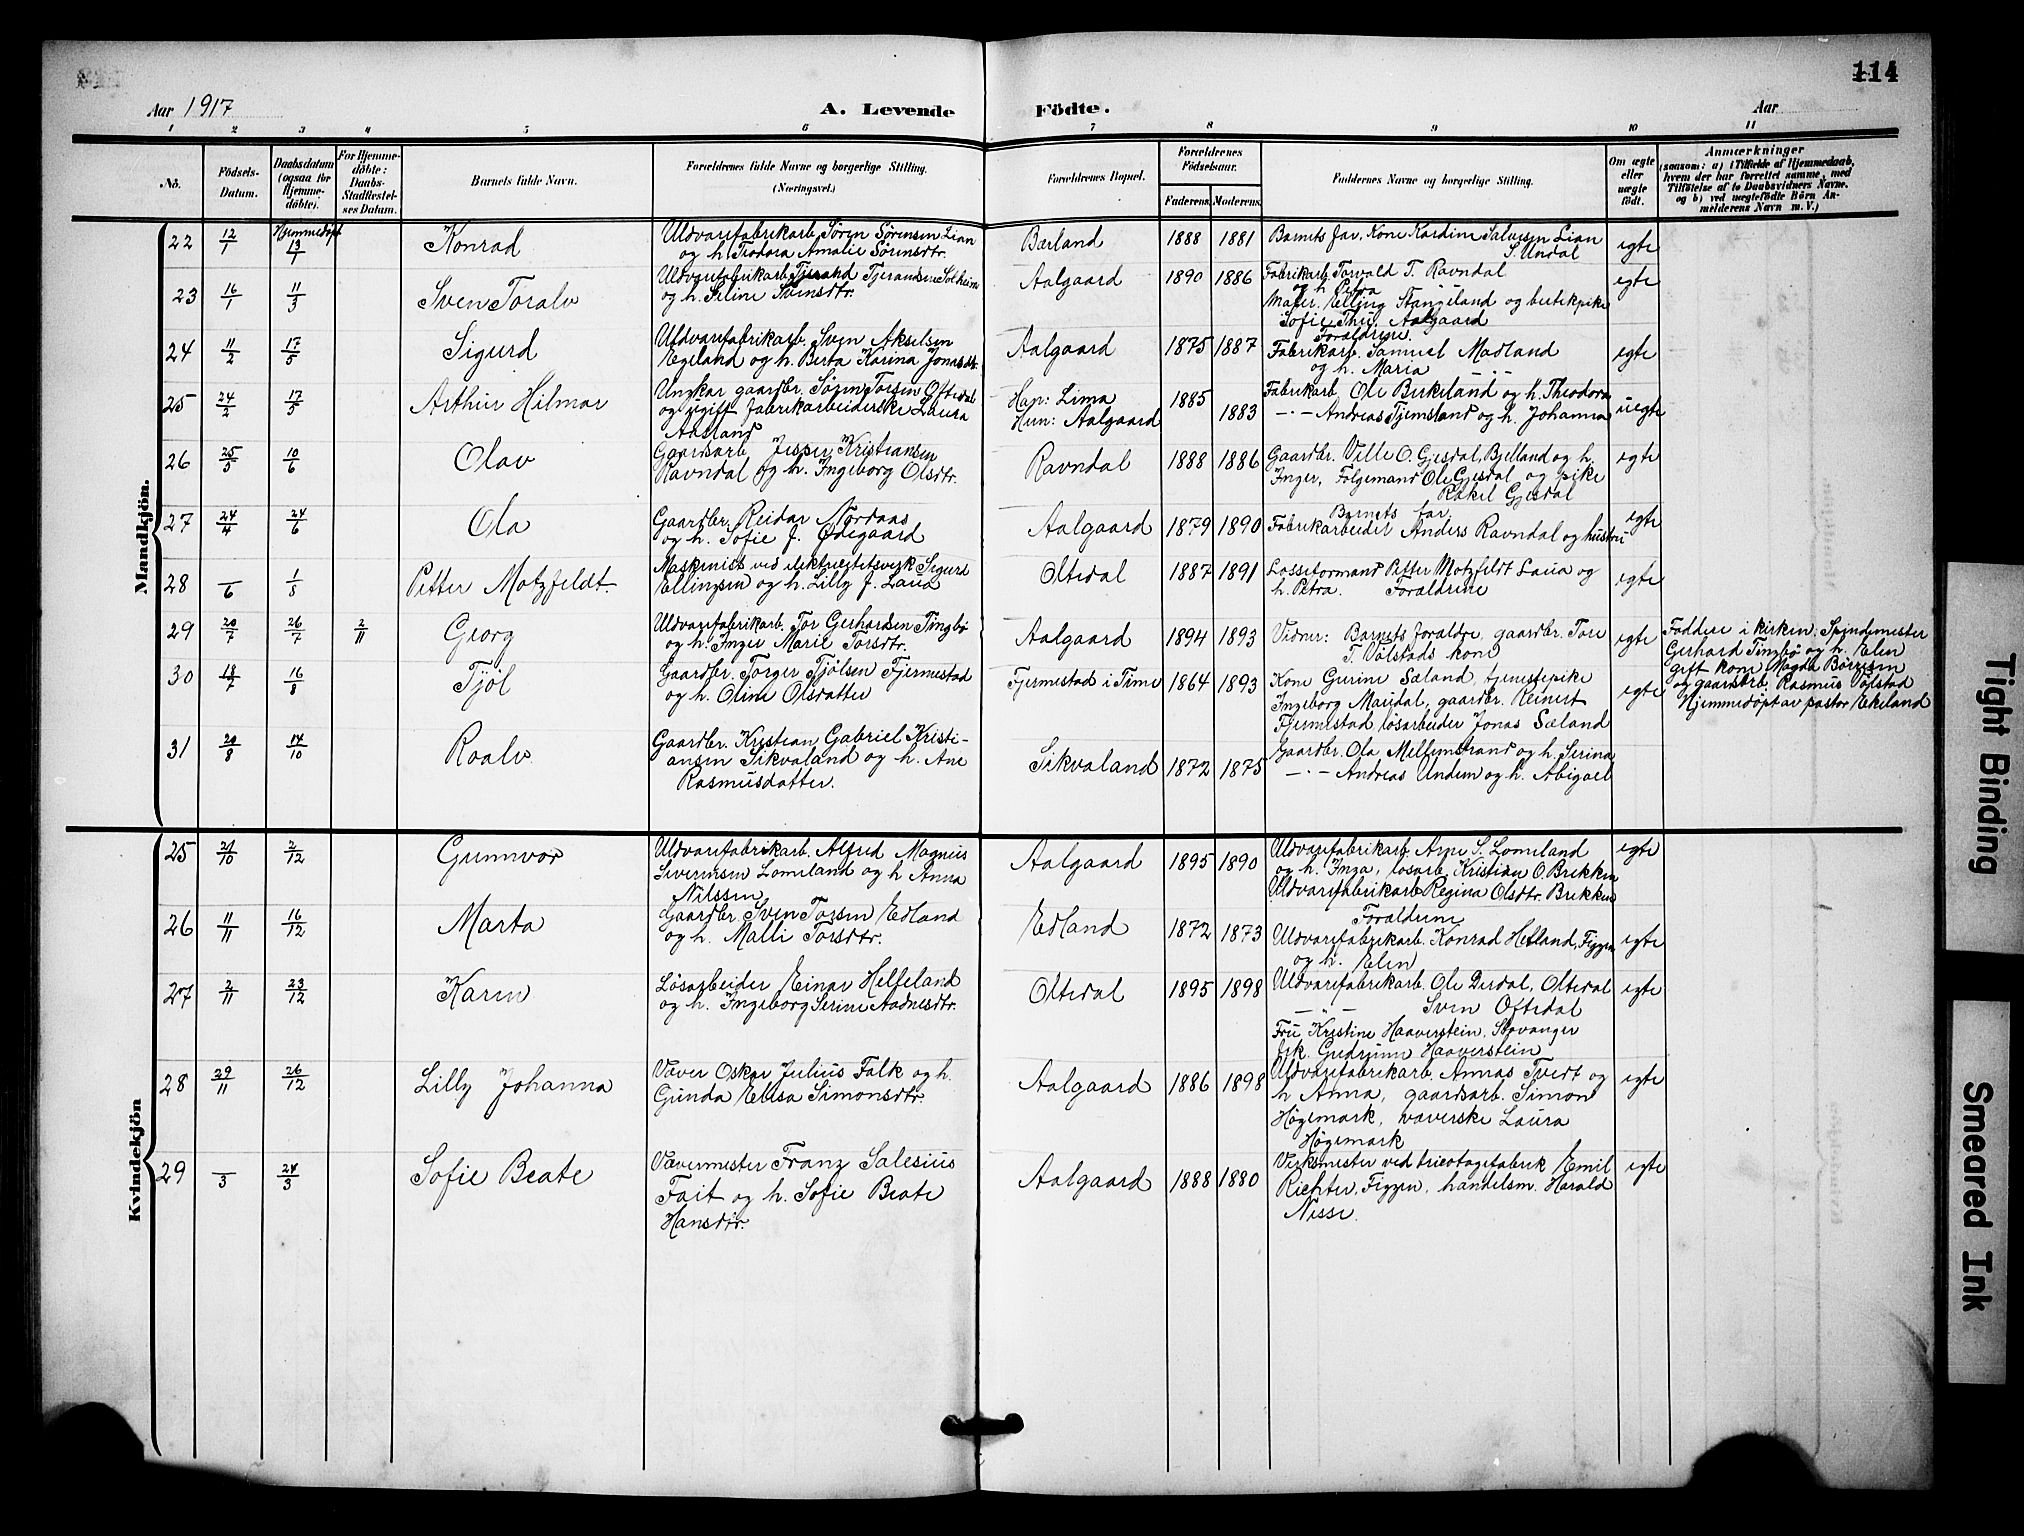 114
Aar 1917
A. Levende
Födte.
Aar
1 2 3 4 5 6 7 8 9 10 11
No.
Födsels-Datum.
Daabsdatum (ogsaa for Hjemmedöbte).
For Hjemmedöbte: Daabs-Stadfæstelses Datum.
Barnets fulde Navn.
Forældrenes fulde Navne og borgerlige Stilling.
(Næringsvei.)
Forældrenes Bopæl.
Forældrenes Födselsaar.
Faderens. Moderens.
Faddernes Navne og borgerlige Stilling.
Om ægte eller uægte födt.
Anmærkninger
(saasom: a) i Tilfælde af Hjemmedaab, hvem der har forrettet samme, med Tilföielse af to Daabsvidners Navne, og b) ved uægtefödte Börn Anmelderens Navn m. V.)
Mandkjön.
22 12/1 Hjemmedøpt 13/1 Konrad
Uldvarefabrikarb. Søren Sørensen Lian
og h. Teodora Amalie Sørensdtr.
Bærland 1888 1881
Barnets far, Kone Kardine Salvesen Lian
S. Undal
egte
23 16/1 11/3 Sven Toralv
Uldvarefabrikarb. Tjerand Tjerandsen Solheim
og h. Seline Svensdtr.
Aalgaard 1890 1886
Fabrikarb. Torvald T. Ravndal
og h. Petra
Maler. Elling Stangeland og butikpike
Sofie Thu, Aalgaard
egte
24 11/2 17/5 Sigurd
Uldvarefabrikarb. Sven Akselsen
Egeland og h. Berta Karina Jonasdtr.
Aalgaard 1875 1887
Forældrene.
Fabrikarb. Samuel Madland
og h. Maria
egte
25 24/2 17/5 Arthur Hilmar
Ungkar gaardbr. Søren Torsen Oftedal
og ugift fabrikarbeiderske Laura
Aasland
Han: Lima 1885
Hun: Aalgaard 1883
Fabrikarb. Ole Birkeland og h. Theodora
— · — Andreas Tjemsland og h. Johanna
uegte
26 25/5 10/6 Olav
Gaardsarb. Jesper Kristiansen
Ravndal og h. Ingeborg Olsdtr.
Ravndal 1888 1886
Gaardbr. Ville O. Gjesdal, Bjelland og h.
Inger, Følgemand Ole Gjesdal og pike
Rakel Gjesdal
egte
27 24/4 24/6 Ola
Gaardbr. Reidar Nordaas
og h. Sofie f. Ødegaard
Aalgaard 1879 1890
Barnets far
Fabrikarbeider Anders Ravndal og hustru
egte
28 —/6 1/8 Petter Motzfeldt.
Maskinist ved elektricitetsverk Sigurd
Ellingsen og h. Lilly f. Laua
Oltedal 1887 1891
Losseformand Petter Motzfeldt Laua og
h. Petra. Foraldrene
egte
29 20/7 26/7 2/11 Georg
Uldvarefabrikarb. Tor Gerhardsen Tingbø
og h. Inger Marie Torsdtr.
Aalgaard 1894 1893
Vidner: Barnets foraldre, gaardbr. Tore
T. Vølstads kone
egte
Faddere i kirken: Spindemester
Gerhard Tingbø og h. Elen
gift kone Magda Børresen
og gaardarb. Rasmus Vølstad
Hjemmedøpt av pastor Ekeland
30 18/7 16/8 Tjøl
Gaardbr. Torger Tjølsen Fjermestad
og h. Oline Olsdatter
Fjermestad i Time 1864 1893
Kone Gurine Sæland, tjenestepike
Ingeborg Maudal, gaardbr. Reinert
Fjermestad løsarbeider Jonas Sæland
egte
31 20/8 14/10 Roalv
Gaardbr. Kristian Gabriel Kristi-
ansen Sikvaland og h. Ane
Rasmusdatter.
Sikvaland 1872 1875
Gaardbr. Ola Mellemstrand og h. Serina
— · — Andreas Undem og h. Abigael
Kvindekjön
25 21/10 2/12 Gunnvor
Uldvarefabrikarb. Alfred Magnus
Severinsen Lomeland og h. Anna
Nilssen
Aalgaard 1895 1890
Uldvarefabrikarb. Arne S. Lomeland
og h. Inga, løsarb. Kristian O. Brekken
Uldvarefabrikarb. Regina Olsdtr. Brekken
egte
26 11/11 16/12 Marta
Gaardbr. Sven Torsen Edland
og h. Malli Torsdtr.
Edland 1872 1873
Foraldrene
Uldvarefabrikarb. Konrad Hetland, Figgen
og h. Elen
egte
27 2/11 23/12 Karen
Løsarbeider Einar Helleland
og h. Ingeborg Serine Aadnesdtr.
Oltedal 1895 1898
Uldvarefabrikarb. Ole Dirdal, Oltedal
— " — Sven Oftedal
Fru Kristine Haaverstein, Stavanger
frk. Gudrunn Haaverstein
egte
28 29/11 26/12 Lilly Johanna
Væver Oskar Julius Falk og h.
Gunda Elisa Simonsdtr.
Aalgaard 1886 1898
Uldvarefabrikarb. Annas Tveit og
h Anna, gaardsarb. Simon
Høgemark, væverske Laura
Høgemark
egte
29 —/3 24/3 Sofie Beate
Vævermester Franz Salesius
Fait og h. Sofie Beate
Hansdtr.
Aalgaard 1888 1880
Verksmester ved tricotagefabrik Emil
Richter, Figgen, handelsm. Harald
Nesse.
egte
Tight Binding
Smeared Ink